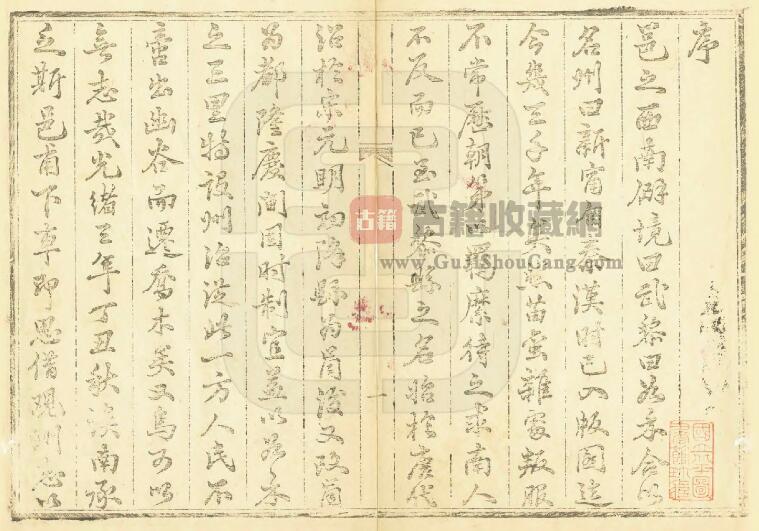 序
邕之西南僻境曰武黎曰今以
名州曰新甯自秦漢時已入版圖迄
今幾三千年矣苗蛮雜處叛服
不常歷朝第以羈縻待之南人
不反而已至武黎縣之名昉於唐代
沿於宋元明初降縣為筒後又改筒
為都隆慶間因時制宜並以思
之三里特設州治從此一方人民不
啻出幽谷而遷喬木矣又烏可以
無志哉光緒三年丁丑秋南承
乏斯邑甫下車即思借觀州志以
一
古籍
古籍收藏網
www.GuJiShouCang.com